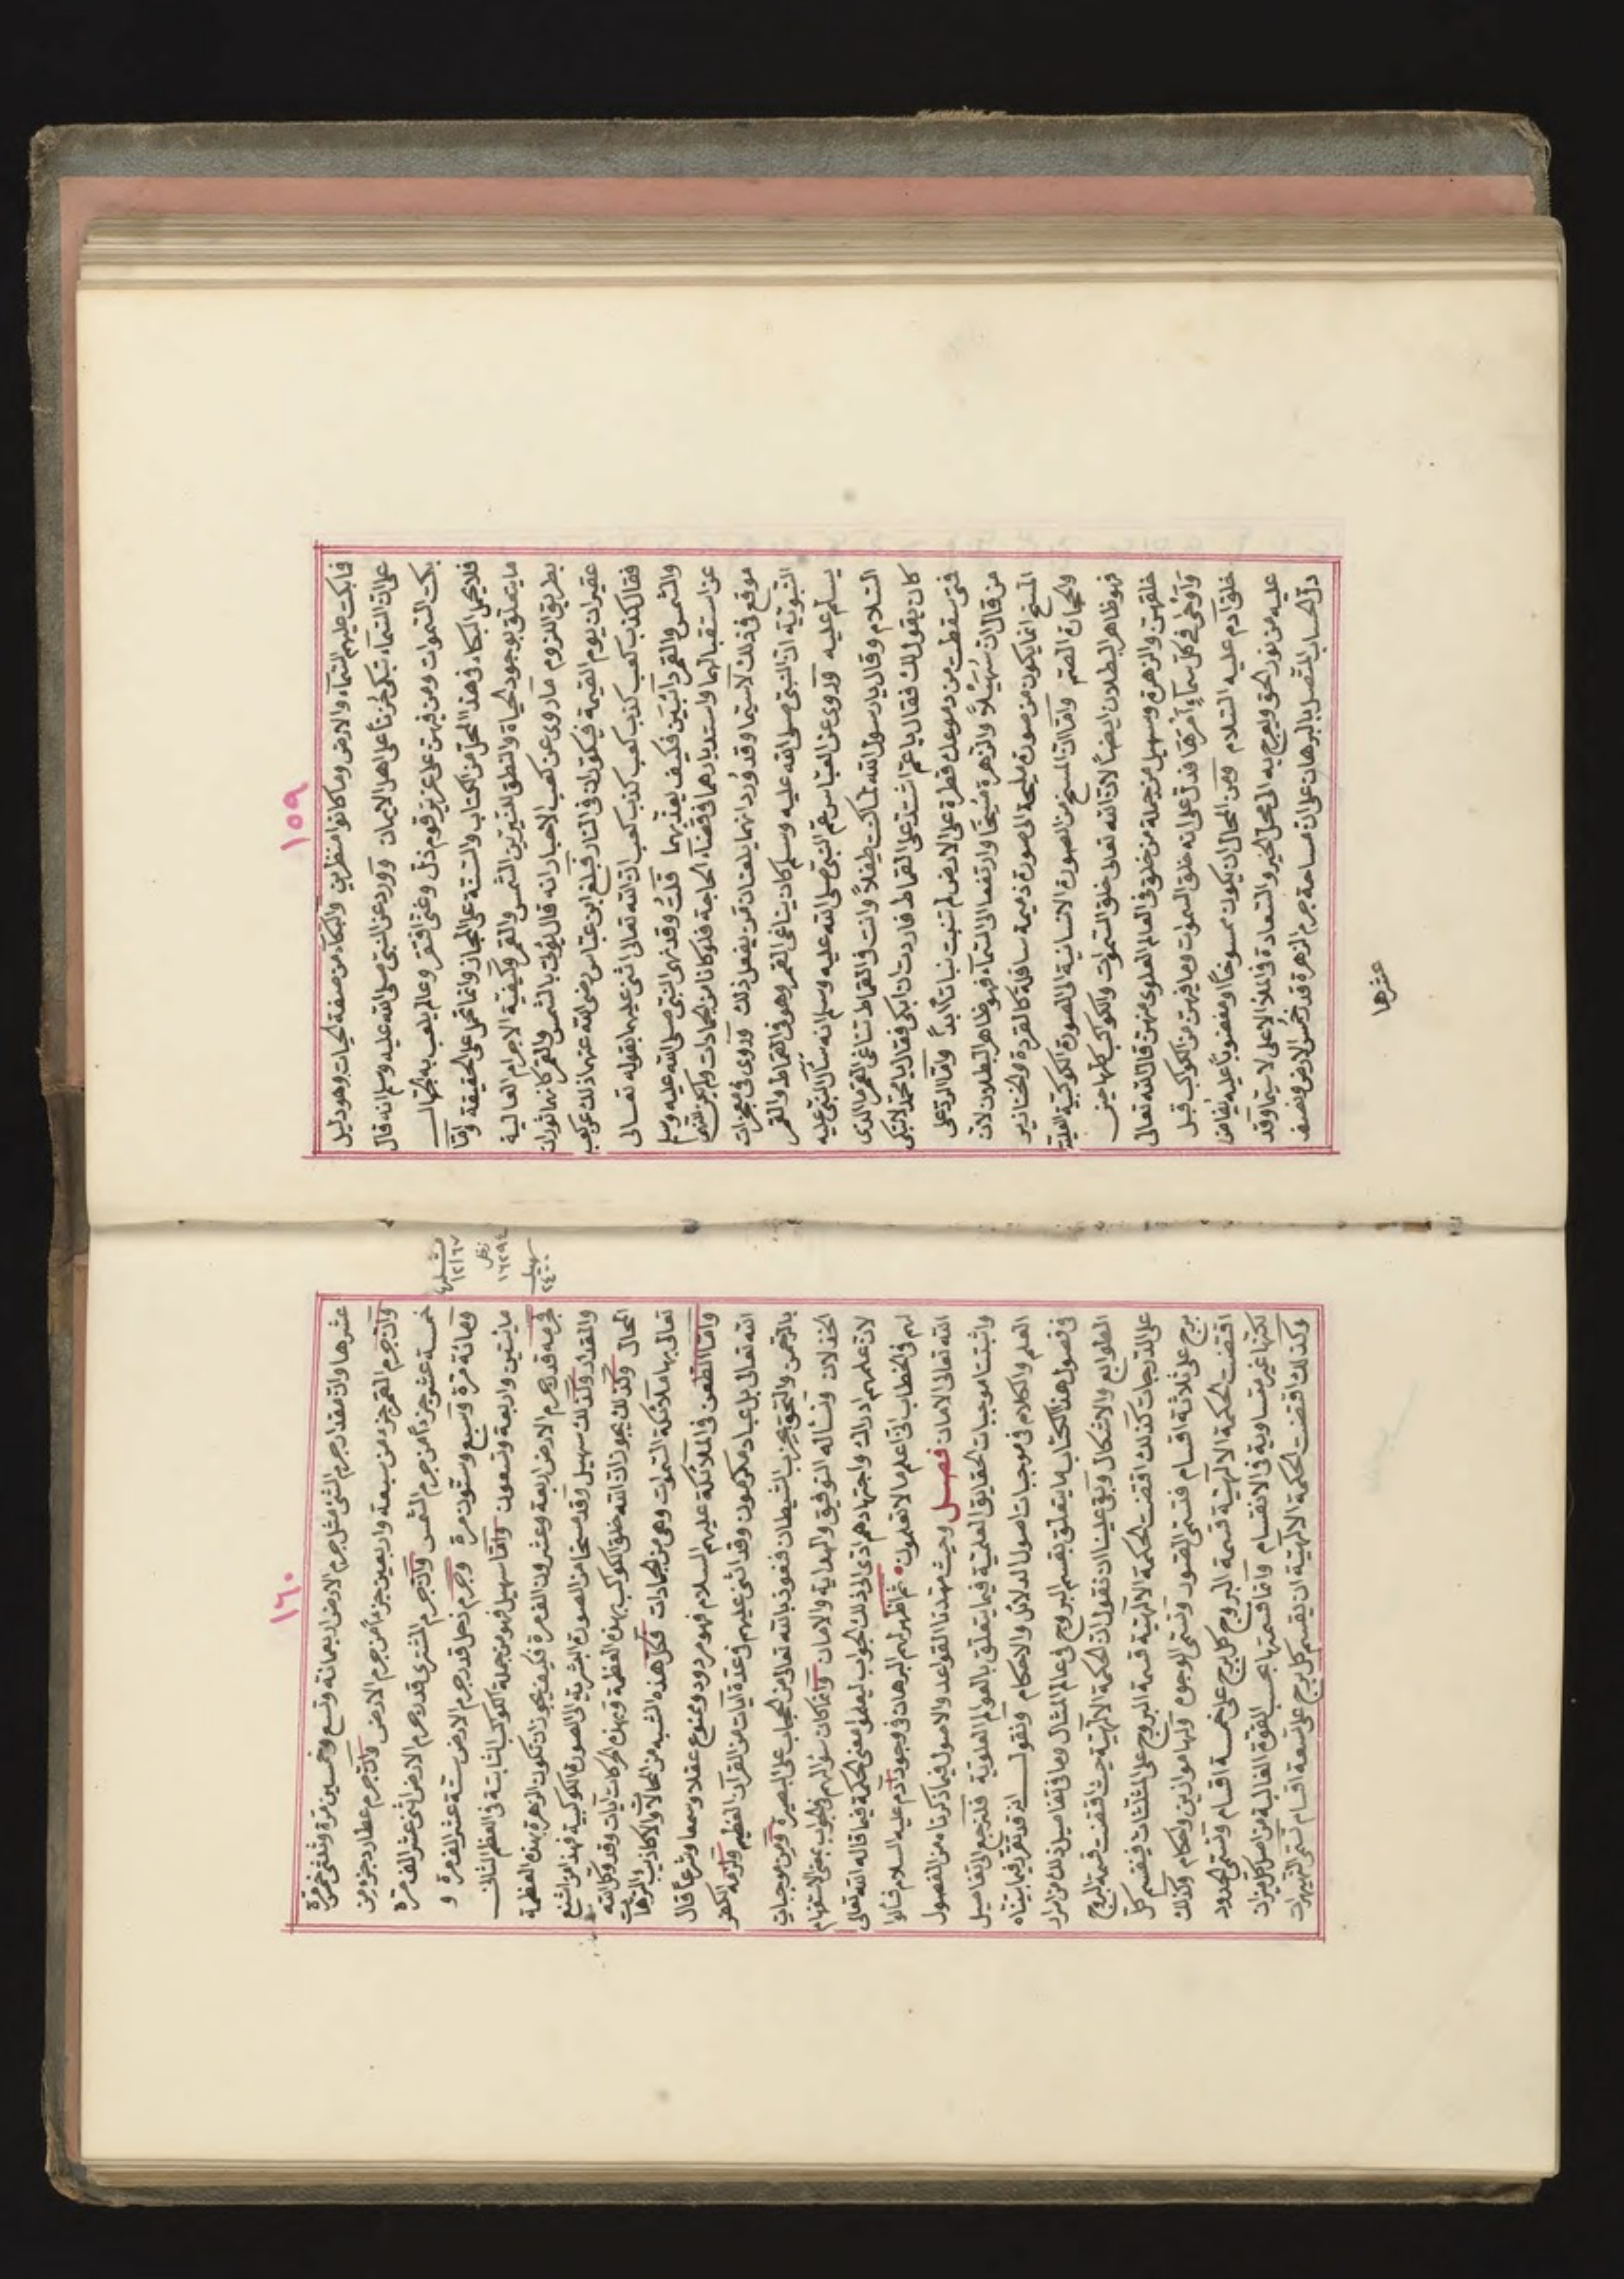 ١٥٩
فما بكت عليهم السمآء والارض وما كانوا منظرين والبكآء من صفة الحيات وهو دليل
على ان السمآء تبكى حزنا على اهل الايمان وورد عن النبى صلى الله عليه وسلم انه قال
بكت السموات ومن فيهن على عزيز قوم ذل وغنى افتقر وعالم يلعب به الجهال
فلا يحمل البكاء فى هذا المحل من الكتاب والسنة على المجاز وانما يحمل على الحقيقة وامّا
ما يتعلق بوجود الحياة والنطق للنيرين الشمس والقمر وكيفية الاجرام العالية
بطريق اللزوم ما روى عن كعب الاحبار انه قال يؤت بالشمس والقمر كانهما ثوران
عقيران يوم القيمة فيكوّران فى النار فبلغ ابن عباس رضى الله عنهما ذلك عن كعب
فقال كذب كعب كذب كعب كذب كعب ان الله تعالى اثنى عليهما بقوله تعالى
والشمس والقمر دآئبين فكيف يعذبهما قلت وقد نهى النبى صلى الله عليه وسلم
عن استقبالهما واستدبارهما فى قضآء الحاجة فلو كانا من الجمادات ولم يكن للنهى
موقع فى ذلك لاسيما وقد ورد انهما يلعنان من يفعل ذلك وروى فى معجزات
النبوتية ان النبى صلى الله عليه وسلم كان يناغى القمر وهو فى القماط والقمر
يسلم عليه وروى عن العباس عم النبى صلى الله عليه وسلم انه سأل النبى عليه
السلام وقال يا رسول الله لما كنت طفلا وانت فى القماط تناغى القمر ما الذى
كان يقول لك فقال يا عم اشتد على القماط فاردت ان ابكى فقال يا محمد لا تبكى
فتى سقطت من دموعك قطرة على الارض لم تنبت نباتا ابدا وامّا الردّ على
من قال ان سهيلا والزهرة مسخا وارتفعا الى السمآء فهو ظاهر البطلان لان
المسخ انما يكون من صورة مليحة الى صورة ذميمة سافلة كالقردة والخنازير
والحجارة الصم وامّا ان المسخ من الصورة الانسانية الى الصورة الكوكبية العلية
فهو ظاهر البطلان ايضا لان الله تعالى خلق السموات والكواكب كلها حين
خلقهن والزهرة وسهيل من جملة من خلق فى العالم العلوى منهن قال الله تعالى
وَأَوْحَى فى كلّ سمآءٍ أَمْرَهَا فدلّ على انه خلق السموات وما فيهن من الكواكب قبل
خلق آدم عليه السلام ومن المحال ان يكون ممسوخا او مغضوبا عليه يفاض
عليه من نور الحق ويعرج به الى محل الخير والسعادة فى الملأ الاعلى لاسيما وقد
دلّ الحساب المتصل بالبرهان على ان مساحة جرم الزهرة قدر خمس الارض ونصف
عشرها
١٦٠
عشرها وان مقدار جرم الشمس مثل جرم الارض اربعمائة وتسع وخمسين مرة وثلثى مرة
وان جرم القمر جزء من سبعة واربعين جزأ من جرم الارض وان جرم عطارد جزء من
خمسة عشر جزءا من جرم الشمس وان جرم المشترى قدر جرم الارض اثنى عشر الف مرة
ومائة مرة وسبع وستون مرة وجرم زحل قدر جرم الارض ستة عشر الف مرة و
مايتين واربعة وتسعون وامّا سهيل فهو من جملة الكواكب الثابتة فى العظم الثانى
فجرمه قدر جرم الارض اربعة وعشرون الف مرة فكيف يجوز ان تكون الزهرة بهذه العظمة
والمقدار وكذلك سهيل وقد مسخا من الصورة البشرية الى الصورة الكوكبية فهذا من اشنع
المحال وكذلك يجوز ان الله خلق الكواكب بهذه العظمة وبهذه الحركات آيات وقد وكل الله
تعالى بها ملآئكة السموات وهى من الجمادات فكل هذه الشبه من المحالات والاكاذيب والترهات
وامّا الطعن فى الملآئكة عليهم السلام فهو مردود وممنوع عقلا وسمعا وشرعا قال
الله تعالى بل عباد مكرمون وقد اثنى عليهم فى عدة آيات من القرآن العظيم ولزمه الكفر
بالرحمن والتحق بحزب الشيطان فنعوذ بالله تعالى من الحجاب على البصيرة ومن موجبات
الخذلان ونسأله التوفيق والهداية والامان وامّا كان سؤالهم والجواب بمعنى الاستفهام
لان علمهم ادراك واجتهادهم ادّى الى ذلك الجواب ليعلموا معنى الحكمة فيما قاله الله تعالى
لهم فى الخطاب انى اعلم ما لا تعلمون ثم اظهر لهم البرهان فى وجود آدم عليه السلام فسألوا
الله تعالى الامان فصل وحيث مهدنا القواعد والاصول فيما ذكرناه من الفصول
واثبتنا موجبات الحقايق العلمية فيما يتعلق بالعوالم العلوية فلنرجع الى تفاصيل
العلم والكلام فى موجبات اصول الدلائل والاحكام ونقول انه قد تقرر فيما بيناه
فى فصول هذا الكتاب ما يتعلق بقسم البروج فى عالم المثال وما فى تفاصيل ذلك من اسرار
الطوالع والاشكال وبقى علينا ان نقول ان الحكمة الالهية حيث اقتضت قسمة البروج
على الدرجات كذلك اقتضت الحكمة الالهية قسمة البروج على المثلثات فينقسم كلّ
برج على ثلاثة اقسام فتسمى القسود وتسمى الوجوه ولها موازين واحكام وكذلك
اقتضت الحكمة الالهية قسمة البروج كل برج على خمسة اقسام وتسمى الحدود
لكنها غير متساوية فى الانقسام وامّا قسمتها بحسب القوة الغالبة من اصل الميزان
وكذلك اقتضت الحكمة الالهية ان ينقسم كل برج على تسعة اقسام تسمى النهبهرات
مشتريها
١٢١٦٧
زحل
١٦٢٩٤
سهيل
٢٤٠٠٠